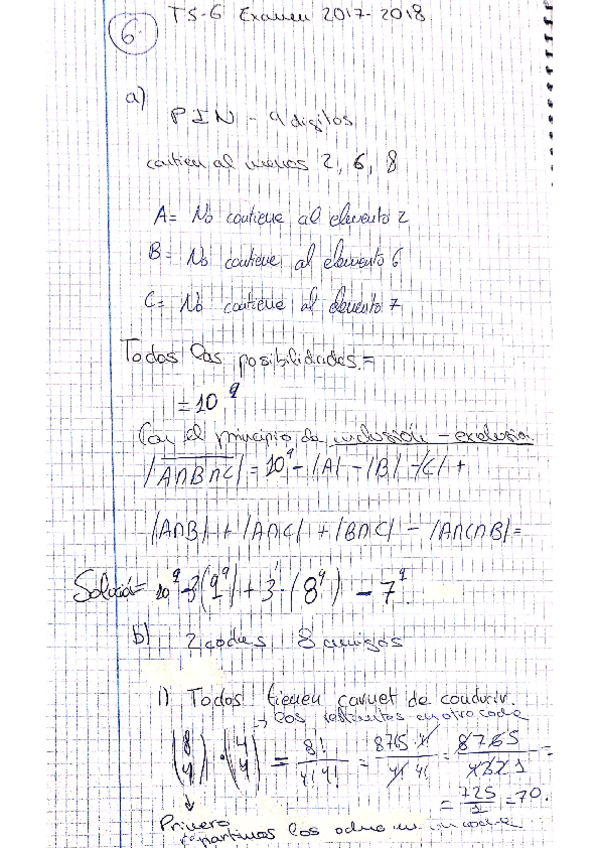 6.
TS-6 Examen 2017-2018
a)
PIN - 9 digitos
contien al menos 2, 6, 8
A= No contiene al elemento 2
B= No contiene al elemento 6
C= No contiene al elemento 7
Todas las posibilidades =
= 10^9
Con el principio de inclusión - exclusion
|A∩B∩C| = 10^9 - |A| - |B| - |C| +
|A∩B| + |A∩C| + |B∩C| - |A∩C∩B| =
Solución= 10^9 - 3(9^9) + 3·(8^9) - 7^9.
b) 2 coches 8 amigos
1) Todos tienen carnet de conducir.
→ los restantes en otro coche
(8 4) · (4 4) = 8! / 4! 4! = 8765·4! / 4! 4! = 8765 / 4321 =
= 7·2·5 / 1 = 70.
Primero
repartimos los ocho en un coche